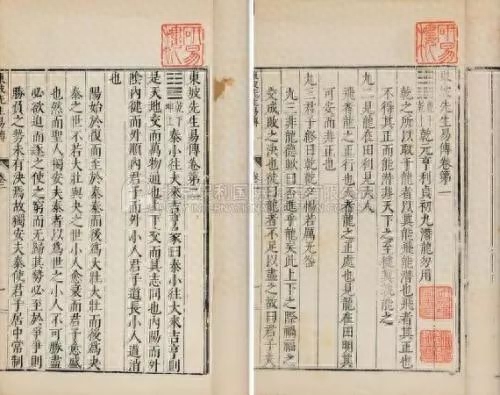 研易樓
東坡先生易傳卷第一
乾下乾上 乾元亨利貞初九潛龍勿用
乾之所以取于龍者以其能飛能潛也飛者其正也
不得其正而能潛非天下之至健其孰能之
九二見龍在田利見大人
飛者龍之正行也天者龍之正處也見龍在田明其
可安而非正也
九三君子終日乾乾夕惕若厲无咎
九三非龍德歟曰否進乎龍矣此上下之際禍福之
交成敗之決也徒曰龍者不足以盡之故曰君子夫
研易樓
東坡先生易傳卷第二
乾下坤上 泰小往大來吉亨彖曰泰小往大來吉亨則
是天地交而萬物通也上下交而其志同也內陽而外
陰內健而外順內君子而外小人君子道長小人道消
也
陽始於復而至於泰泰而後爲大壯大壯而後爲夬
泰之世不若大壯與夬之世小人愈衰而君子愈盛
也然而聖人獨安夫泰者以爲世之小人不可勝盡
必欲迫而逐之使之窮而無歸其勢必至於爭爭則
勝負之勢未有決焉故獨安夫泰使君子居中常制
東坡先生易傳 卷二